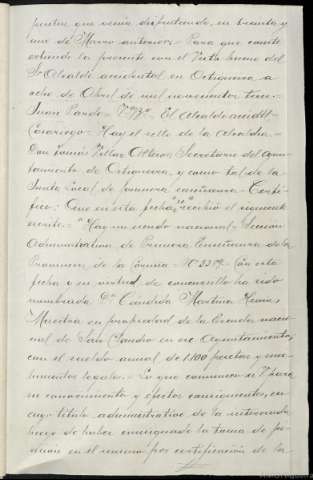 pectas que venia disfrutando, en treinta y
uno de Marzo anterior.- Para que conste
extiendo la presente con el Visto bueno del
Sr Alcalde accidental en Ortigueira a
ocho de Abril de mil novecientos trece.-
Juan Pardo.- Vº Bº.- El Alcalde accidtl-
Casariego- Hay el sello de la Alcaldia.-
Don Tomás Villar Secretario del Ayun-
tamiento de Ortigueira, y como tal de la
Junta Local de primera enseñanza.- Certi-
fico:- Que en esta fecha se recibió el siguiente
escrito.- "Hay un sello nacional.- Sección
Administrativa de Primera Enseñanza de la
Provincia de la Coruña.- Con esta
fecha y en virtud de concursillo ha sido
nombrada Dª Candida Martina
Maestra en propiedad de la Escuela nacio-
nal de San Claudio en ese Ayuntamiento,
con el sueldo anual de 1.100 pesetas y emo-
lumentos locales.- Lo que comunico a V para
su conocimiento y efectos consiguientes, en
cuyo titulo administrativo de la interesada
luego de haber consignado la toma de po-
sesión en el mismo por certificación de la